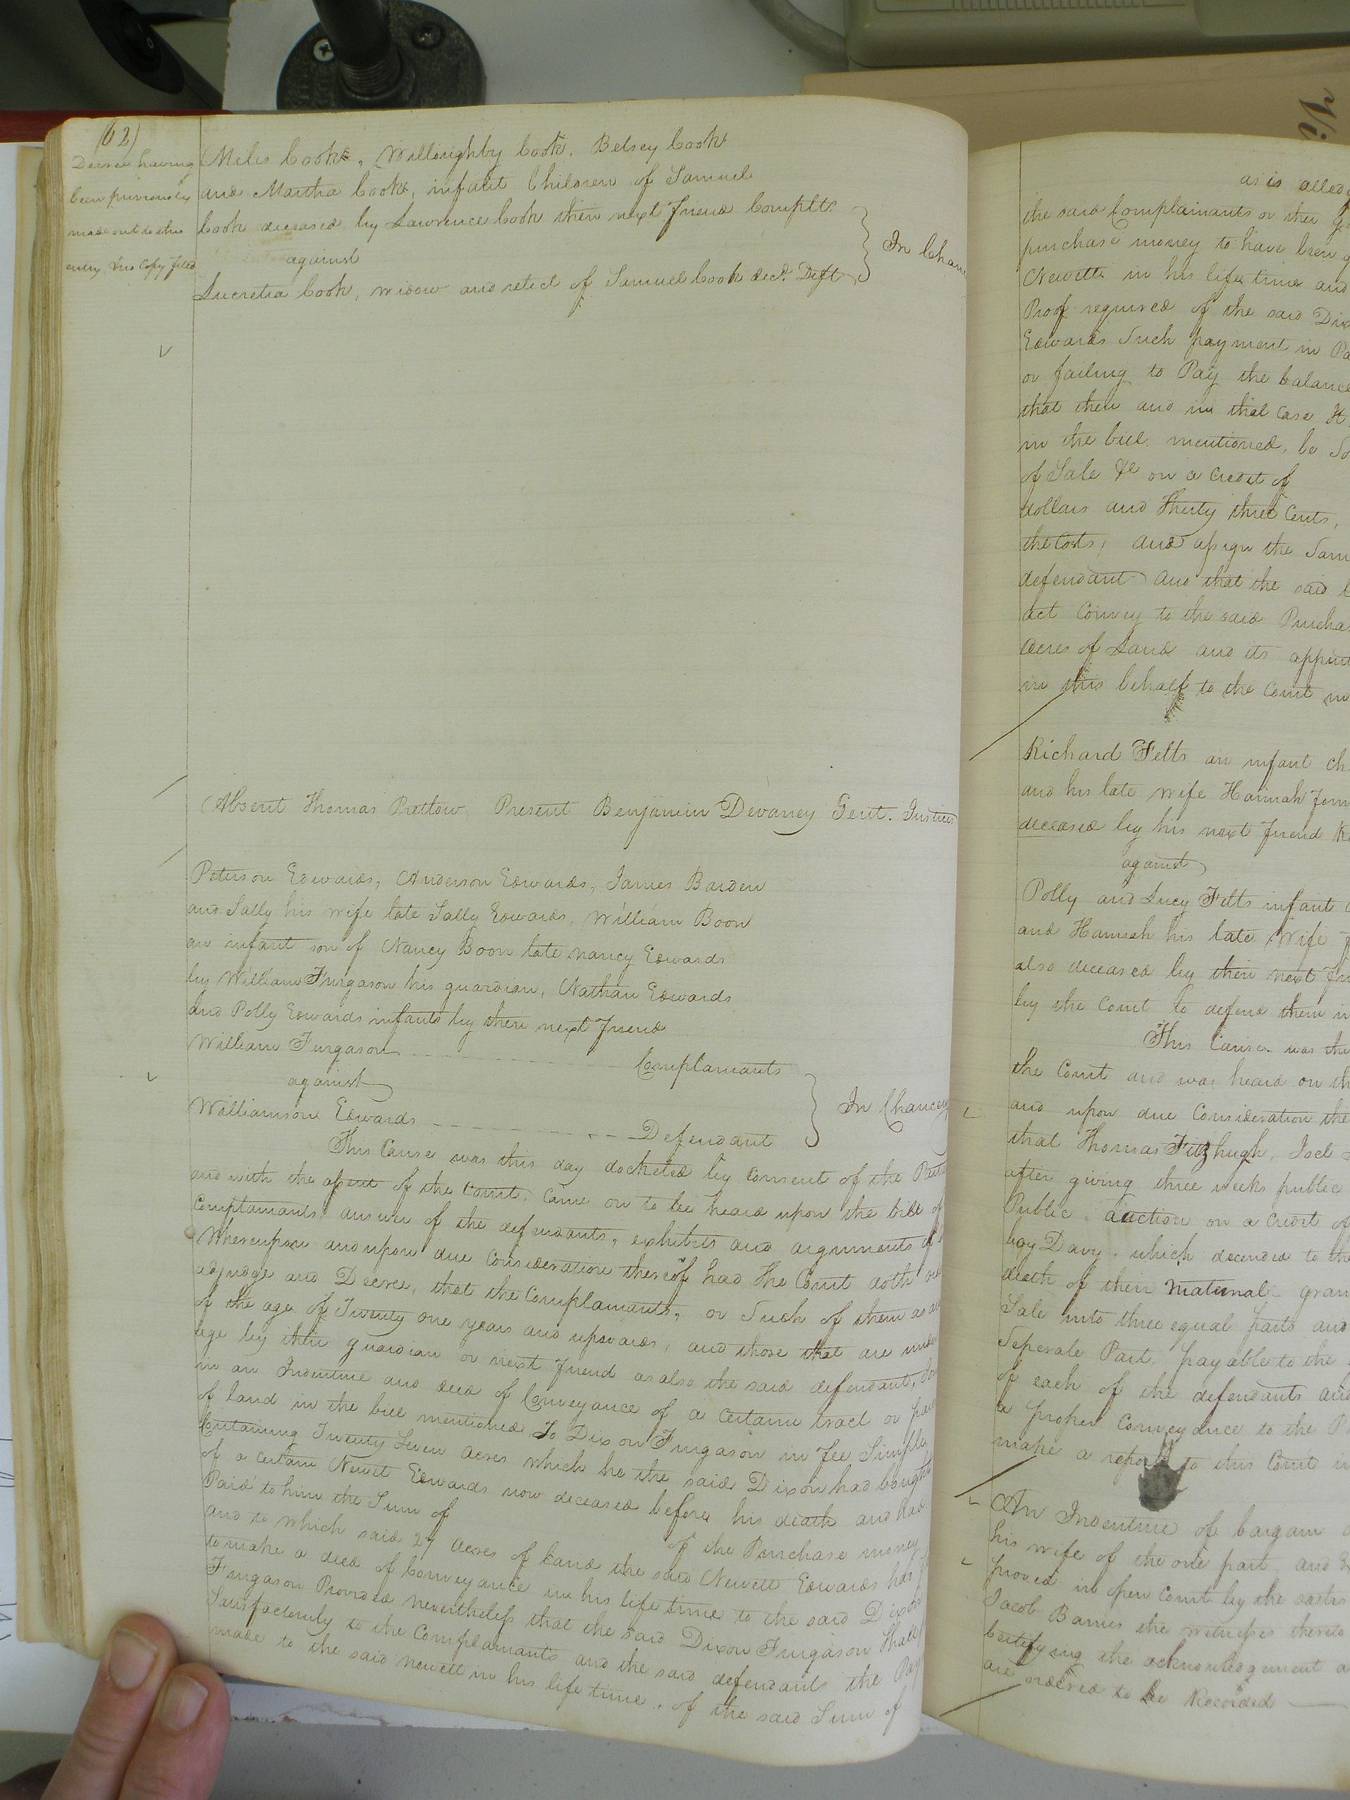 (62)
Decree having
been previously
made out to this
entry, see Copy filed
Miles Cook, Willoughby Cook, Betsey Cook
and Martha Cook, infant Children of Samuel
Cook deceased by Lawrence Cook their next friend Complts.
against
Lucretia Cook, widow and relict of Samuel Cook decd. Deft
In Chan
Absent Thomas Pretlow. Present Benjamin Devaney Gent. Justices
Peterson Edwards, Anderson Edwards, James Barden
and Sally his wife late Sally Edwards, William Boon
an infant son of Nancy Boon late Nancy Edwards
by William Furgason his guardian, Nathan Edwards
and Polly Edwards infants by their next friend
William Furgason Complainants
against
Williamson Edwards Defendant
In Chancery
This Cause was this day docketed by Consent of the Parti
and with the assent of the Court, Came on to be heard upon the bill of
Complainants, answer of the defendants, exhibits and arguments of
Whereupon and upon due Consideration thereof had the Court doth
adjudge and Decree, that the Complainants, or Such of them as are
of the age of Twenty one years and upwards, and those that are under
age by their guardian or next friend as also the said defendant,
in an Indenture and deed of Conveyance of a Certain tract or par
of land in the bill mentioned To Dixon Furgason in fee Simple
Containing Twenty Seven acres which he the said Dixon had bought
of a certain Newit Edwards now deceased before his death and had
Paid to him the Sum of of the Purchase money
and to which said 27 acres of Land the said Newett Edwards has f
to make a deed of Conveyance in his life time to the said Dixon
Furgason Provided nevertheless that the said Dixon Furgason Shall
Satisfactorily to the Complainants and the said defendants the Pay
made to the said Newett in his life time, of the said Sum of
as is alledg
the said Complainants or their g
purchase money to have been
Newitt in his life time and
Proof required of the said Dix
Edwards Such payment in Pa
or failing to Pay the balance
that then and in that Case
in the bill mentioned, be So
of Sale &c on a Credit of
dollars and Thirty three Cents,
the Costs, and assign the Sam
defendant And that the said
act Convey to the said Purchas
acres of Land and its appurt
in this behalf to the Court
Richard Felts an infant ch
and his late wife Hannah form
deceased by his next friend
against
Polly and Lucy Felts infant
and Hannah his late wife
also deceased by their next fri
by the Court to defend them in
This Cause was this
the Court and was heard on th
and upon due Consideration the
that Thomas Fitzhugh, Joel
after giving three weeks public
Public auction on a Credit of
boy Davy, which decended to th
death of their maternal gran
Sale into three equal parts and
Seperate Part, payable to the
of each of the defendants and
a proper Conveyance to the P
make a report to this Court
An Indenture of bargain
his wife of the one part, and
proved in open Court by the oaths
Jacob Barnes the witnesses thereto
Certifying the acknowledgement
are ordered to be Recorded